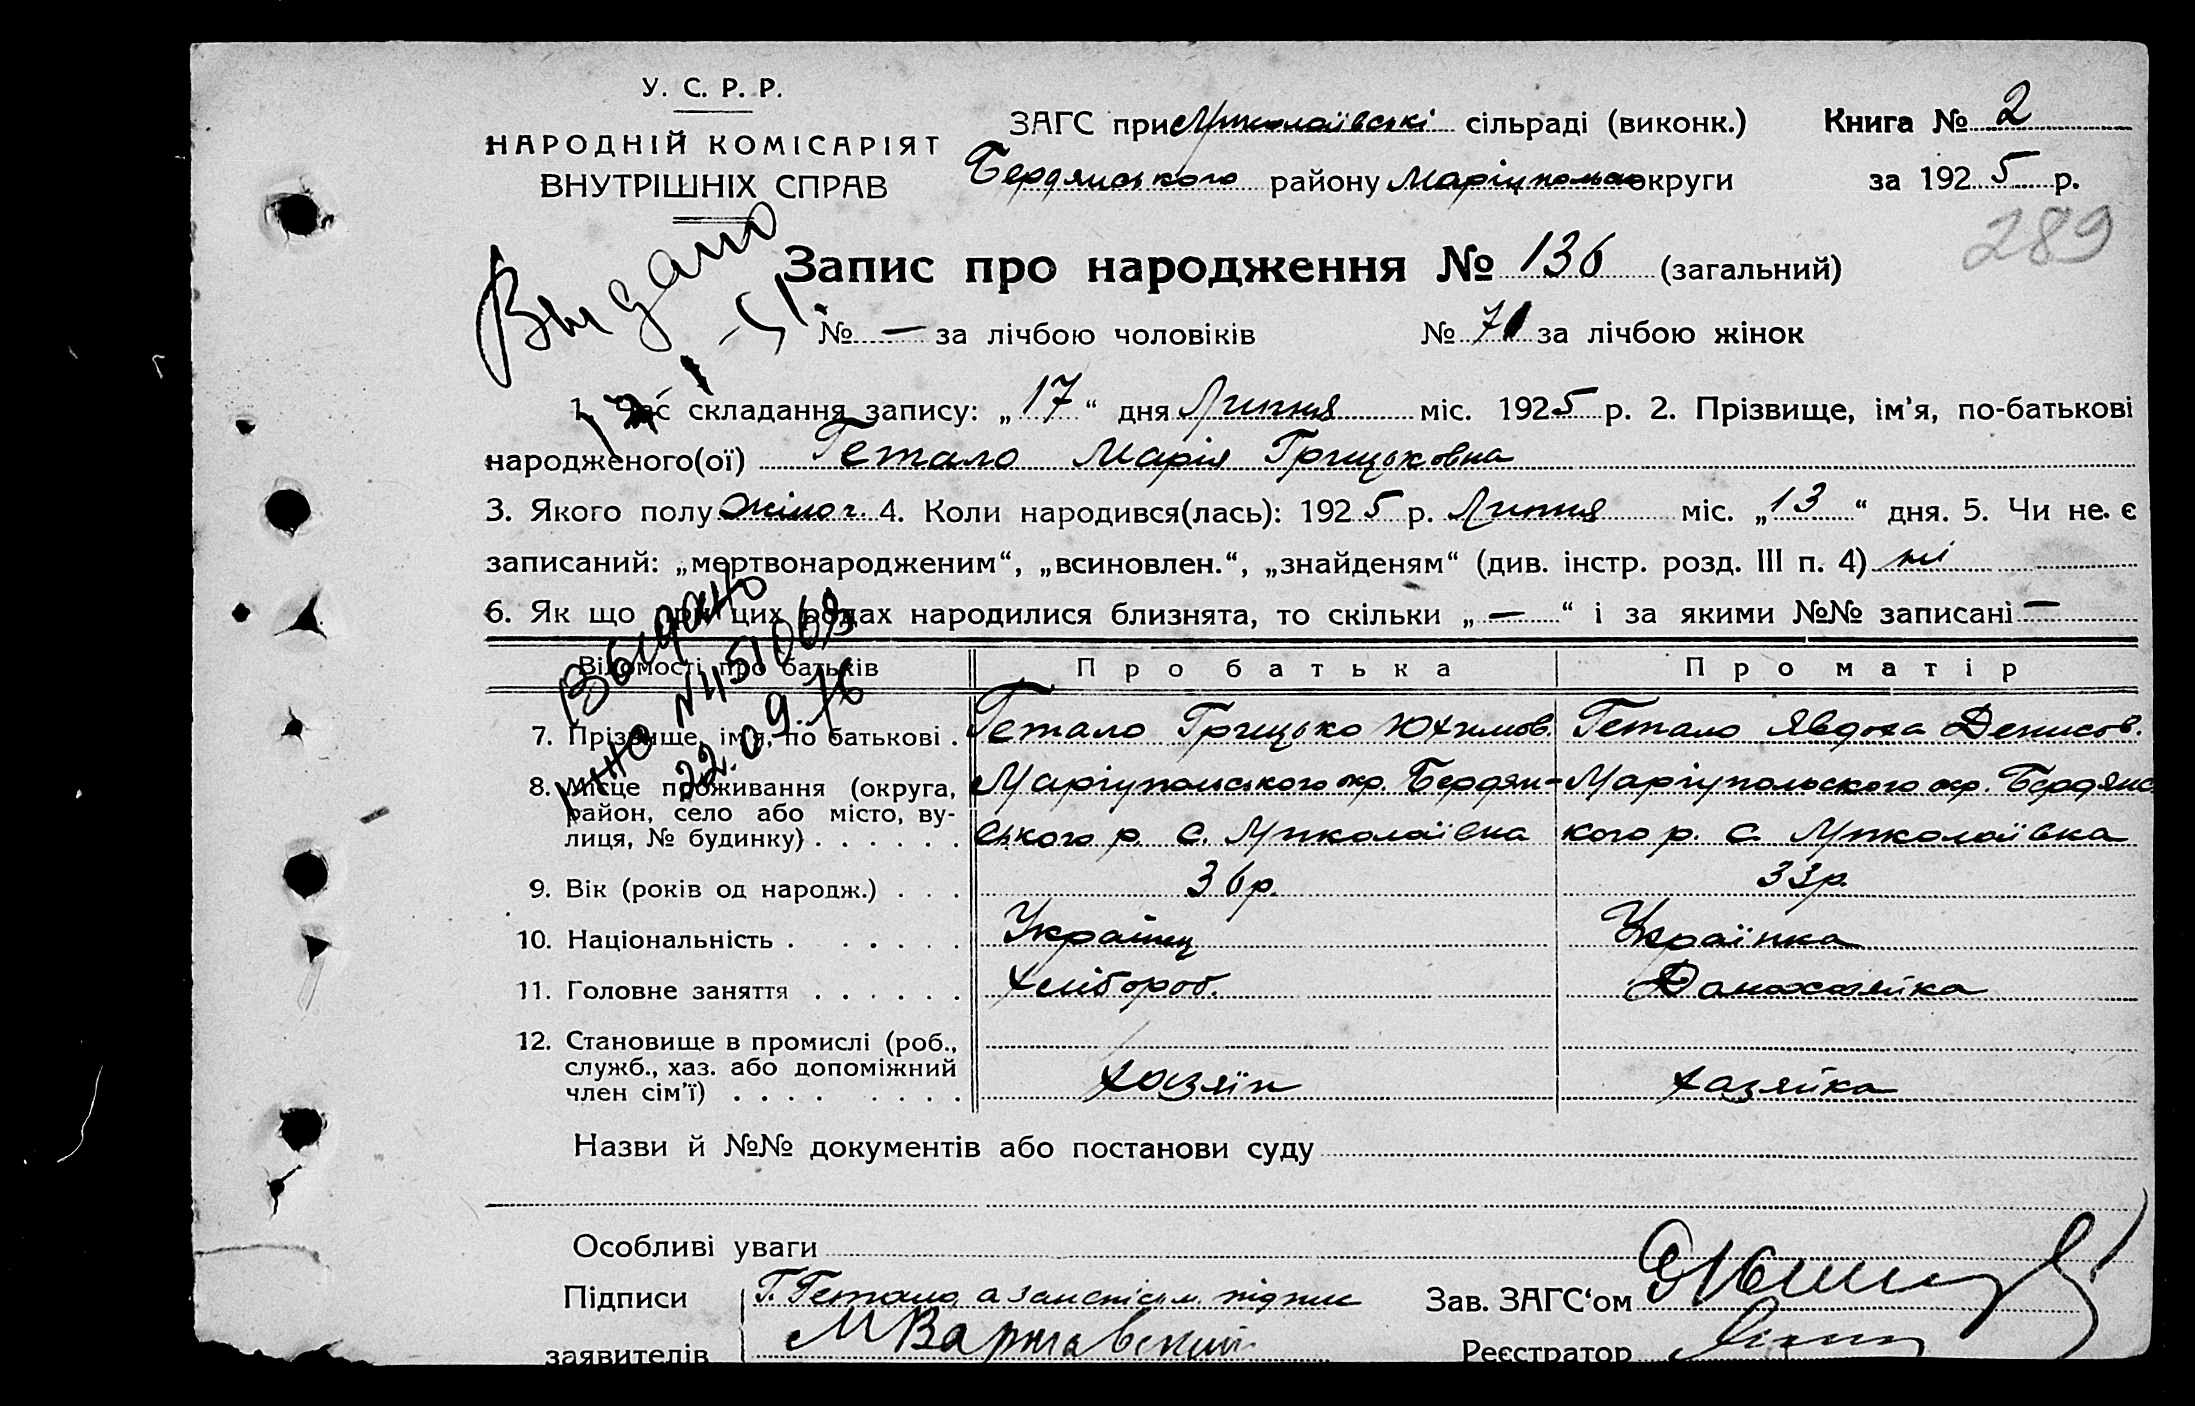 У. С. Р. Р.
НАРОДНІЙ КОМІСАРІЯТ
ВНУТРІШНІХ СПРАВ
ЗАГС при Миколаївскі сільраді (виконк.)
Книга № 2
Бердянського району Маріупольс округи
за 1925 р.
289
Видано
Запис про народження № 136 (загальний)
№ — за лічбою чоловіків № 71 за лічбою жінок
1. Час складання запису: „17“ дня Липня міс. 1925 р. 2. Прізвище, ім’я, по-батькові
народженого(ої) Гетало Марія Грицьковна
3. Якого полу жіноч. 4. Коли народився(лась): 1925 р. Липня міс. „13“ дня. 5. Чи не є
записаний: „мертвонародженим“, „всиновлен.“, „знайденям“ (див. інстр. розд. III п. 4) ні
6. Як що при цих родах народилися близнята, то скільки „—“ і за якими №№ записані —
Выдано
N 451068
22.09.76
Відомості про батьків Про батька Про матір
7. Прізвище, ім’я, по батькові . Гетало Грицько Юхимов. Гетало Явдоха Денисов.
8. Місце проживання (округа, Маріупольського окр. Бердян- Маріупольского окр. Бердянс
район, село або місто, ву-
лиця, № будинку) . . . . . . ського р. с. Миколаївка кого р. с. Миколаївка
9. Вік (років од народж.) . . . 36 р. 33 р.
10. Національність . . . . . . Українец Українка
11. Головне заняття . . . . . . Хлібороб. Домохазяйка
12. Становище в промислі (роб.,
служб., хаз. або допоміжний
член сім’ї) . . . . . . . . Хазяїн Хазяйка
Назви й №№ документів або постанови суду
Особливі уваги
Підписи Г. Гетало, а за неписьм. підпис Зав. ЗАГС‘ом
заявителів М Варшавский Реєстратор